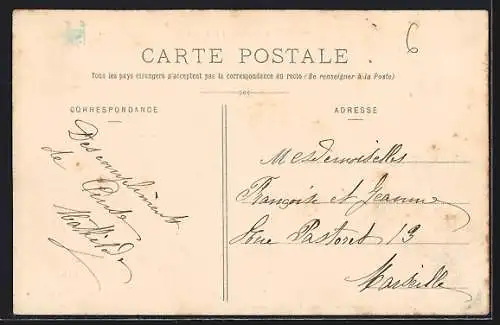 6
CARTE POSTALE
Tous les pays étrangers n'acceptent pas la correspondance du recto (Se renseigner à la Poste)
CORRESPONDANCE
Des compliments
de
Mathilde
ADRESSE
Mesdemoiselles
Françoise et Jeanne
Rue Pastoret 13
Marseille